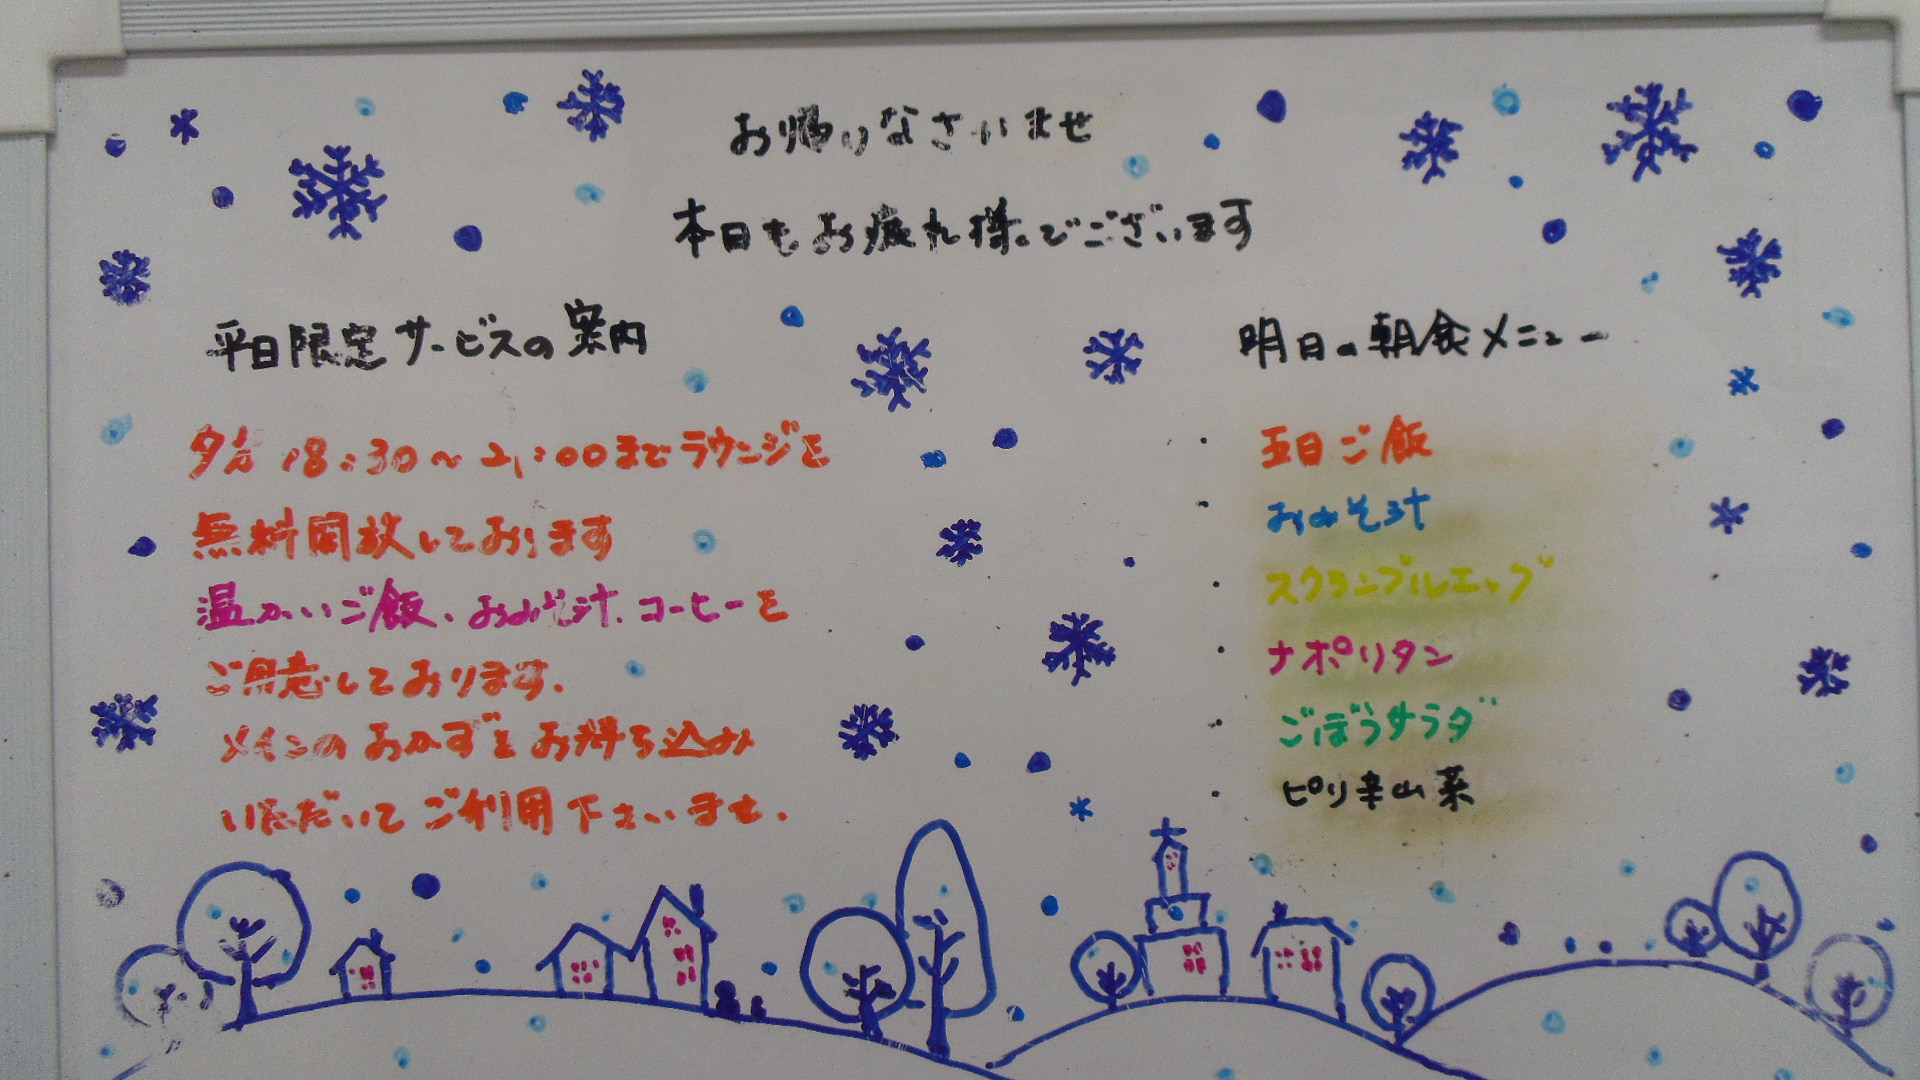 お帰りなさいませ
本日もお疲れ様でございます
平日限定サービスの案内
夕方 18:30～21:00までラウンジを
無料開放しております
温かいご飯、おみそ汁、コーヒーを
ご用意しております.
メインのおかずをお持ち込み
いただいてご利用下さいませ.
明日の朝食メニュー
・五目ご飯
・おみそ汁
・スクランブルエッグ
・ナポリタン
・ごぼうサラダ
・ピリ辛山菜